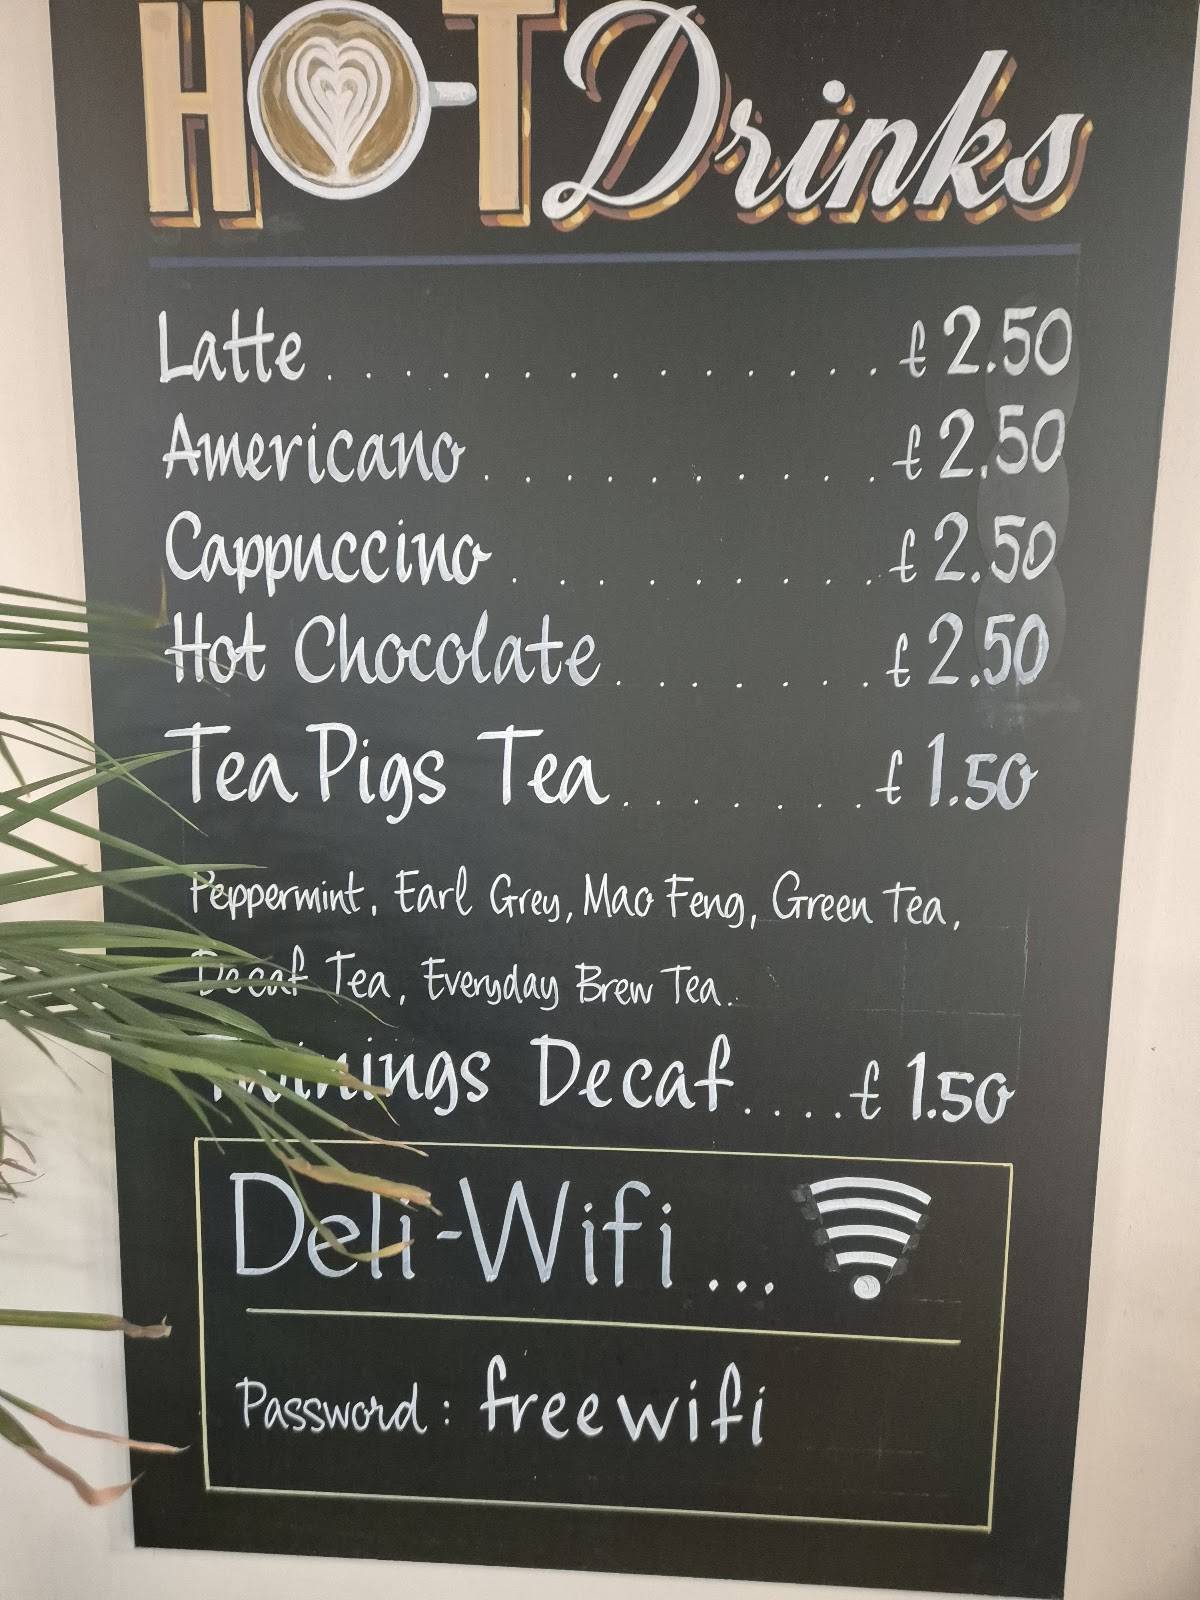 HOT Drinks
Latte . . . . . . . . . . . . . . £2.50
Americano . . . . . . . . . . £2.50
Cappuccino . . . . . . . . . £2.50
Hot Chocolate . . . . . . . £2.50
Tea Pigs Tea . . . . . . . £1.50
Peppermint, Earl Grey, Mao Feng, Green Tea,
Decaf Tea, Everyday Brew Tea.
Twinings Decaf....£1.50
Deli-Wifi ...
Password: freewifi